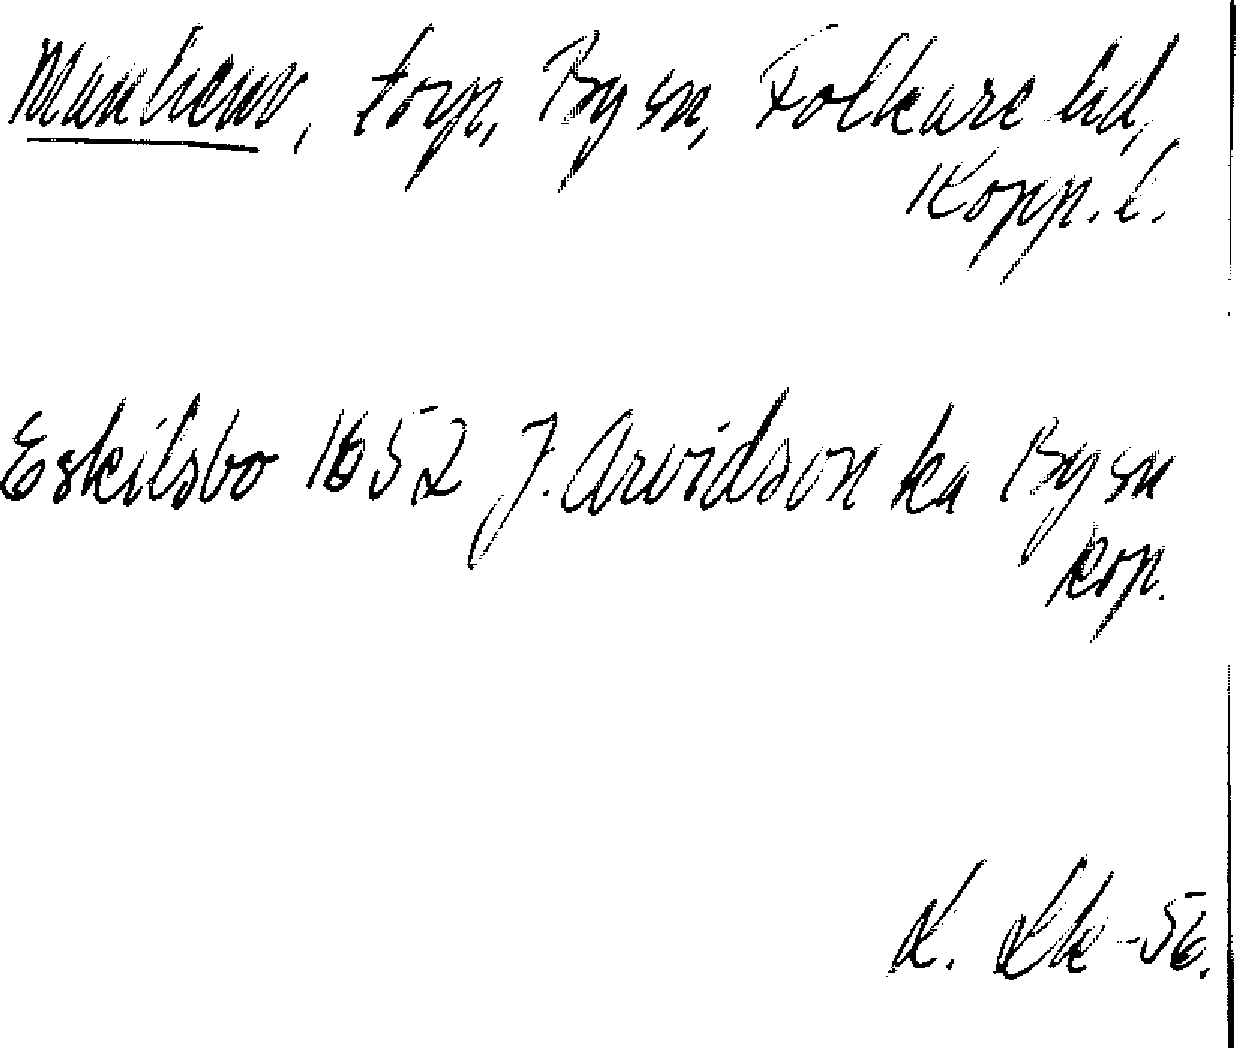 Manhem, torp, By sn, Folkare hd,
Kopp. l.
Eskilsbo 1652 J. Arvidson ka By sn
kop.
-56.